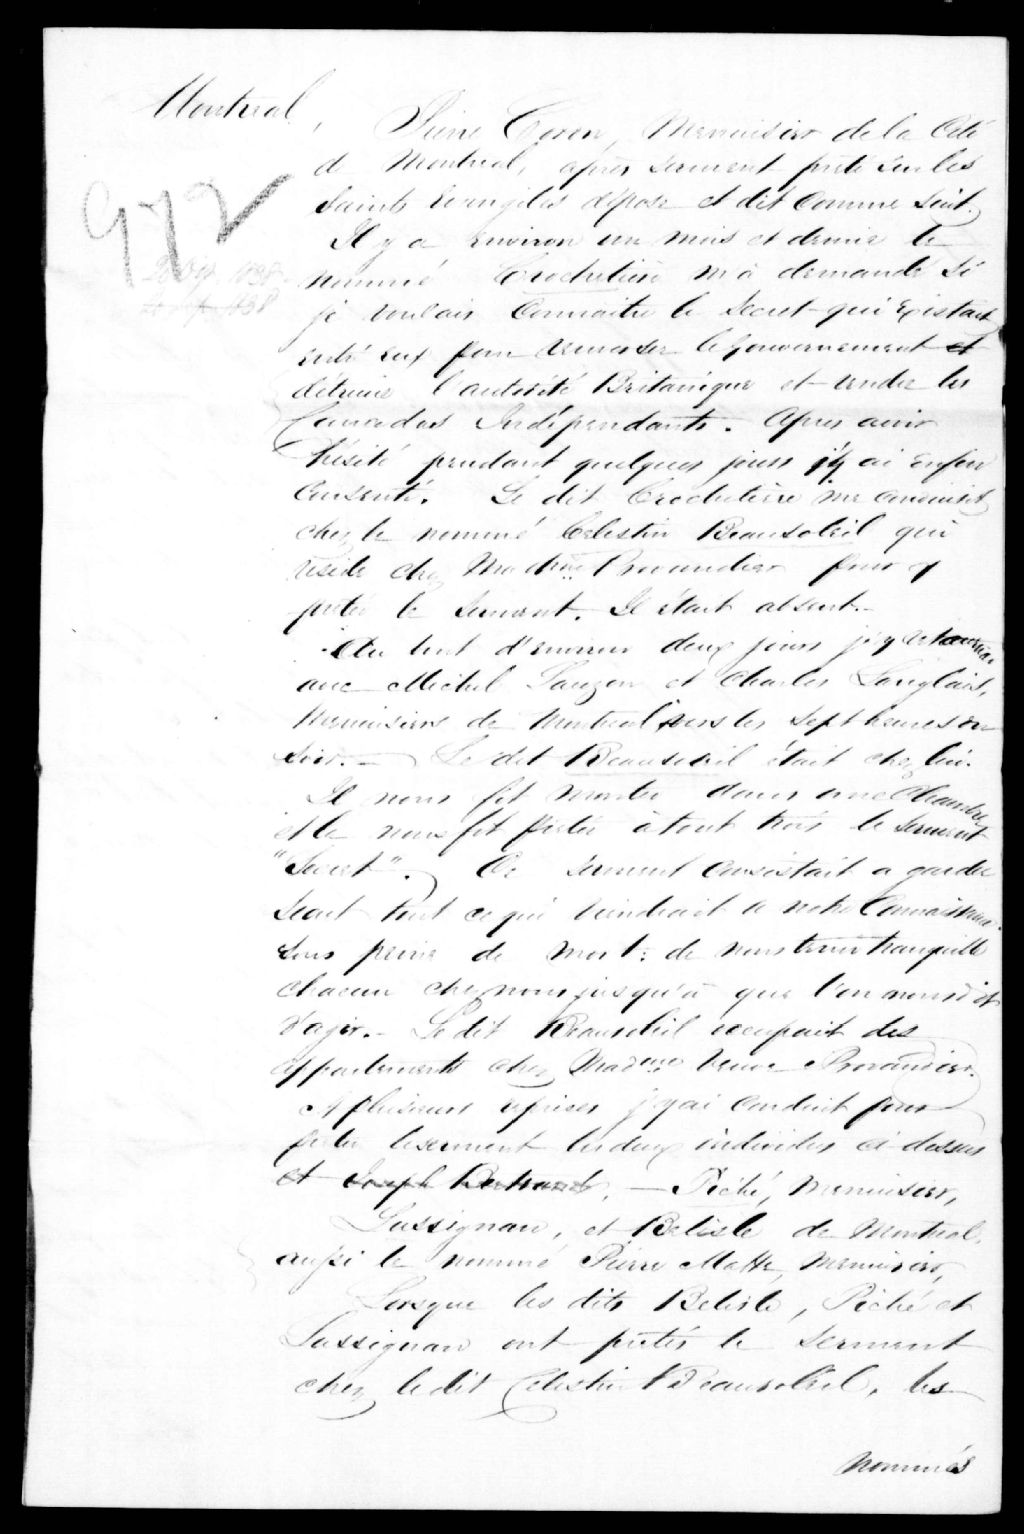 Montréal,
Pierre Coron, Menuisier de la Cité
de Montreal, après serment prêté sur les
Saints Evangiles dépose et dit comme suit.
972
Il y a environ un mois et demie le
nommé Crochetière m'a demandé si
je voulais Connaitre le Secret qui existait
entre eux pour renverser le Gouvernement et
détruire l'autorité Britanique et rendre les
Canadas Indépendants. Apres avoir
hésité pendant quelques jours j'y ai enfin
consenti. Le dit Crochetière me conduisit
chez le nommé Celestin Beausoleil qui
reside chez Madme Provandier pour y
preter le serment. Il était absent.
Au bout d'environ deux jours j'y retournai
avec Michel Lauzon et Charles Langlais,
Menuisiers de Montreal vers les sept heures du
soir. – Le dit Beausoleil était chez lui.
Il nous fit monter dans une Chambre
et le nous fit prêter à tout trois le serment
"Secret". Ce serment consistait a garder
secret tout ce qui viendrait a notre Connaissance
sous peine de mort: de nous tenir tranquille
chacun chez nous jusqu'à que l'on nous dit
d'agir. – Le dit Beausoleil occupait des
appartements chez Madme Veuve Provandier.
A plusieurs reprises j'y ai conduit pour
preter le serment les deux individus ci-dessus
et Joseph Bertrand, – Piché, Menuisier,
Lussignan, et Belisle de Montreal,
aussi le nommé Pierre Matte, Menuisier,
Lorsque les dits Belisle, Piché et
Lussignan ont prêtés le serment
chez le dit Celestin Beausoleil, les
nommés